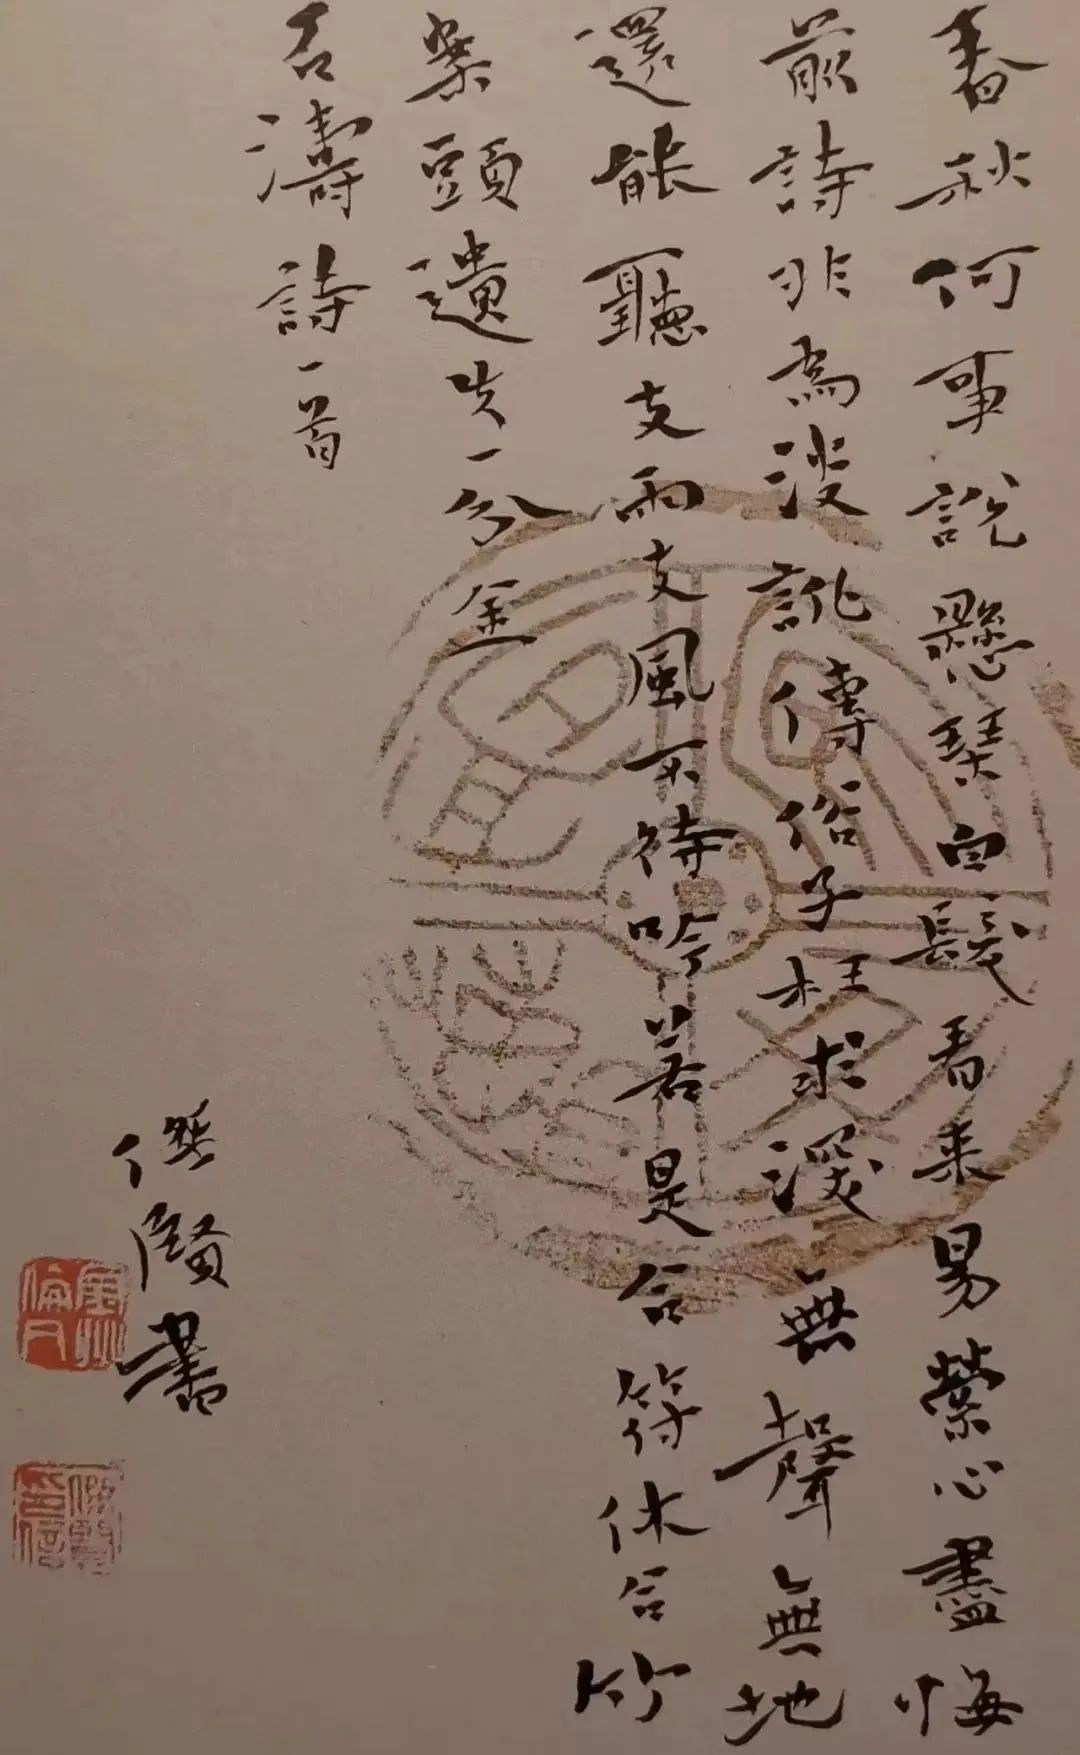 春秋何事說懸琴白髮看來易縈心盡悔
前詩非爲淡訛傳俗子枉求深無聲無地
還能聽支雨支風不待吟若是合符休合竹
案頭遺失一分金
石濤詩一首
傑賢書